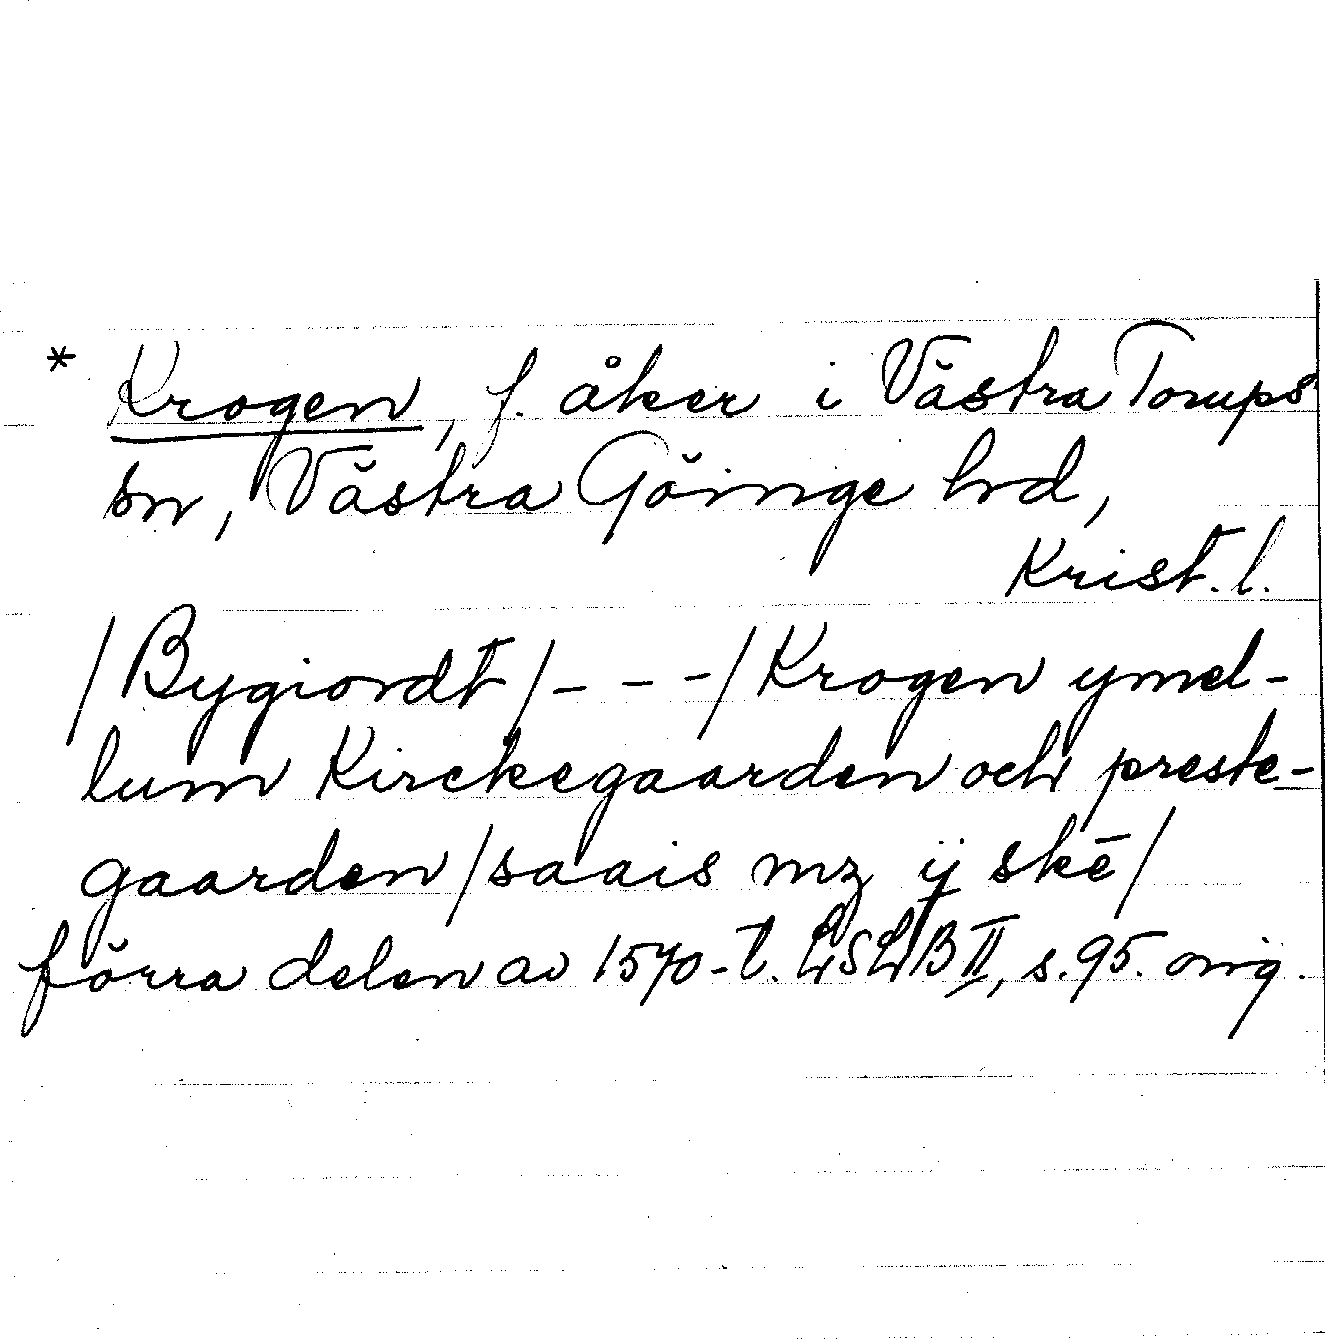 * Krogen, f. åker i Västra Torups
sn, Västra Göinge hd,
Krist. l.
/Bygiordt/ - - - /Krogen ymel-
lum Kirckegaarden och preste-
gaarden/saais mz ij skē/
förra delen av 1570-t. LSLB II, s. 95. orig.